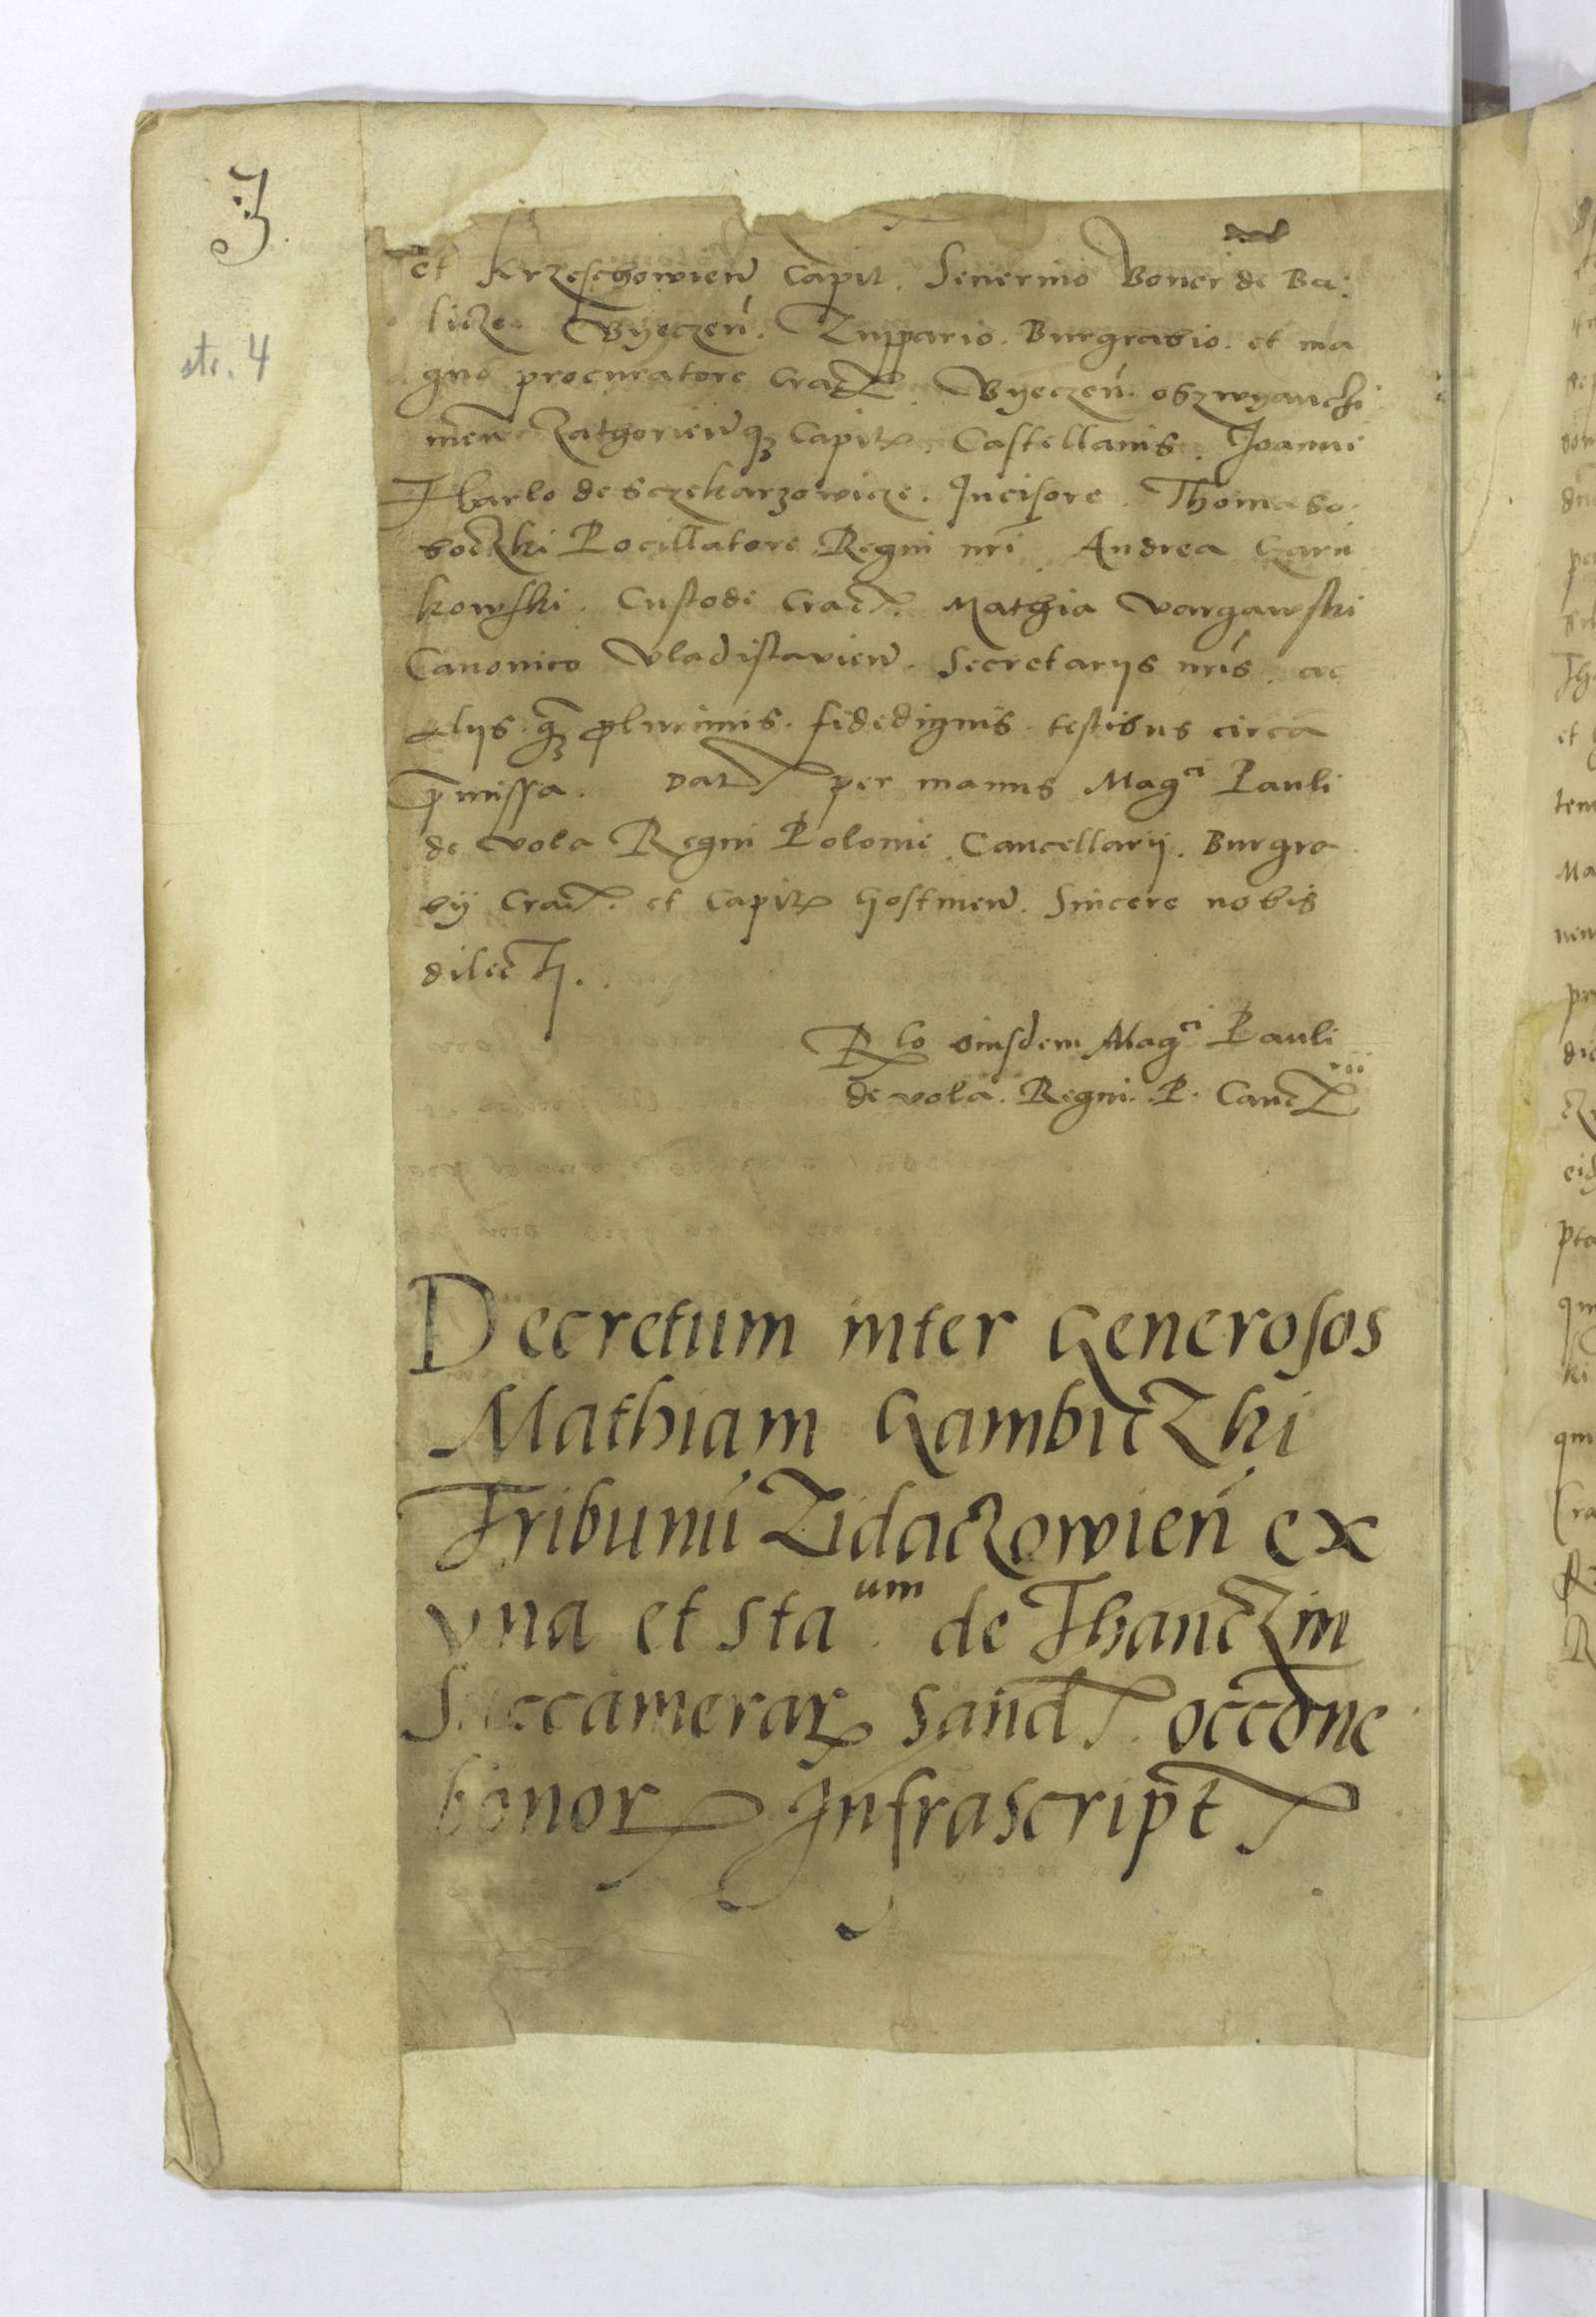 3
str. 4
et Krzeschowien̄ Capit. Seuerino Boner de Ba:
licze Byeczen̄. Zuppario. Burgrabio. et ma
gno procuratore Crac. Byeczen̄. oszwyanczi
men̄ Zathorien̄q3 Capit. Castellanis. Joanne
Tharlo de Sczekarzowicze. Incisore. Thoma So
boczki Pocillatore Regni nr̄i. Andrea Czarn
kowski. Custode Crac. Mathia Vargawski
Canonico Vladislauien̄. Secretarijs nr̄is. ac
alijs q̄3 plurimis. fidedignis. testibus circa
p̄missa. Dat per manus Mag^ci Pauli
de Vola Regni Polonie Cancellarij. Burgra
bij Crac. et Capit Gostinen̄. Sincere nobis
dilecti.
Rlo eiusdem Mag^ci Pauli
de vola. Regni. P. Canc^rii
Decretum inter Generosos
Mathiam GambiczKi
Tribunū Zidaczowien̄ ex
vna et Sta^um. de Thanczin
Succamerar Sand. occōne
bonor Infrascript